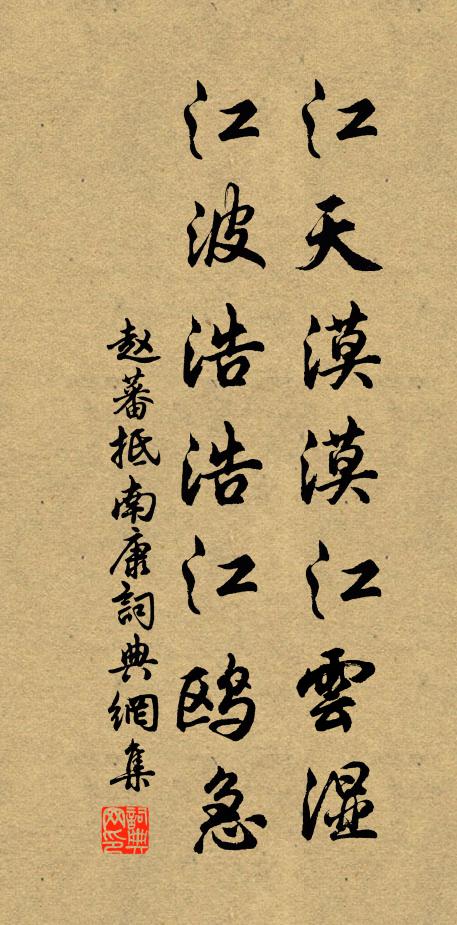 江天漠漠江雲湿
江波浩浩江鸥急
赵蕃抵南康詞典網集
詞典网印